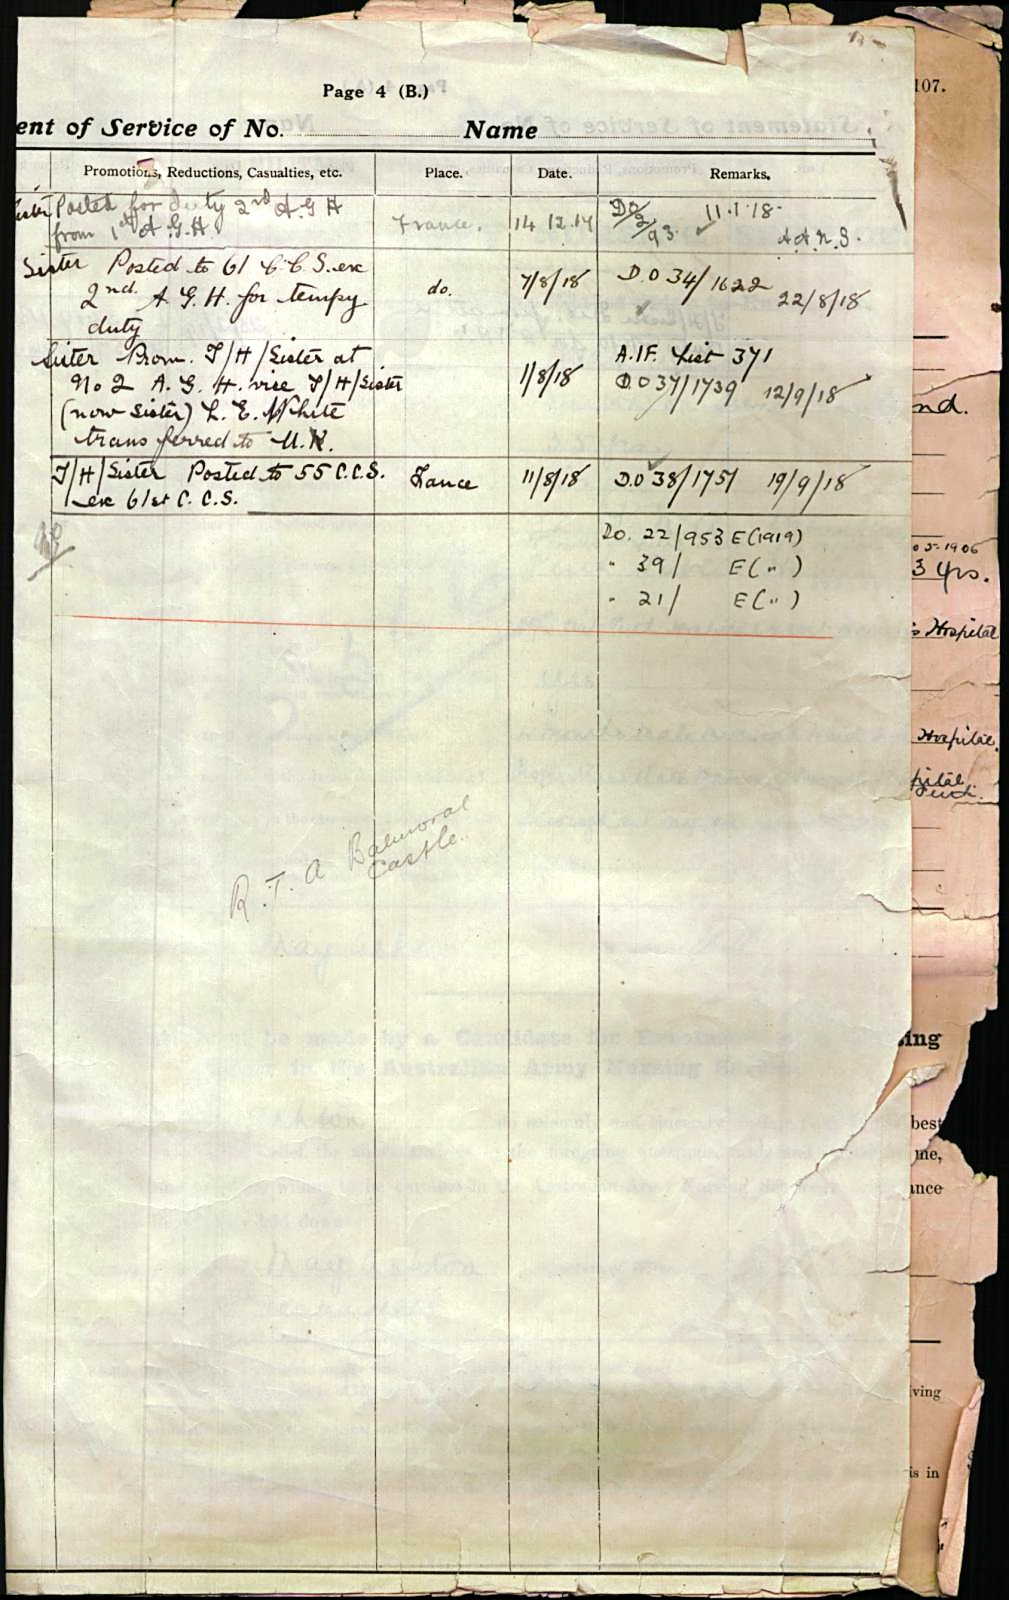 107.
Page 4 (B.)
ent of Service of No. Name
Promotions, Reductions, Casualties, etc. Place. Date. Remarks.
Sister Posted for duty 2nd A.G.H France. 14 12.17 DO 2/93. 11.1.18.
from 1st A.G.H. A A N S.
Sister Posted to 61 C.C.S. ex do. 7/8/18 D.O 34/1622 22/8/18
2nd. A G.H. for tempy
duty
Sister Prom. T/H/Sister at 1/8/18 A.I.F. List 371
No 2 A.G.H. vice T/H/Sister D.O 37/1739 12/9/18
(now Sister) L.E. White
transferred to U.K.
T/H/Sister Posted to 55 C.C.S. France 11/8/18 D.O 38/1751 19/9/18
ex 61st C.C.S.
Do. 22/953 E (1919)
" 39/ E ( " )
" 21/ E ( " )
R.T.A Balmoral
Castle.
nd.
1906
3 yrs.
Hospital
Hospital.
pital
ing
best
me,
ance
ving
is in